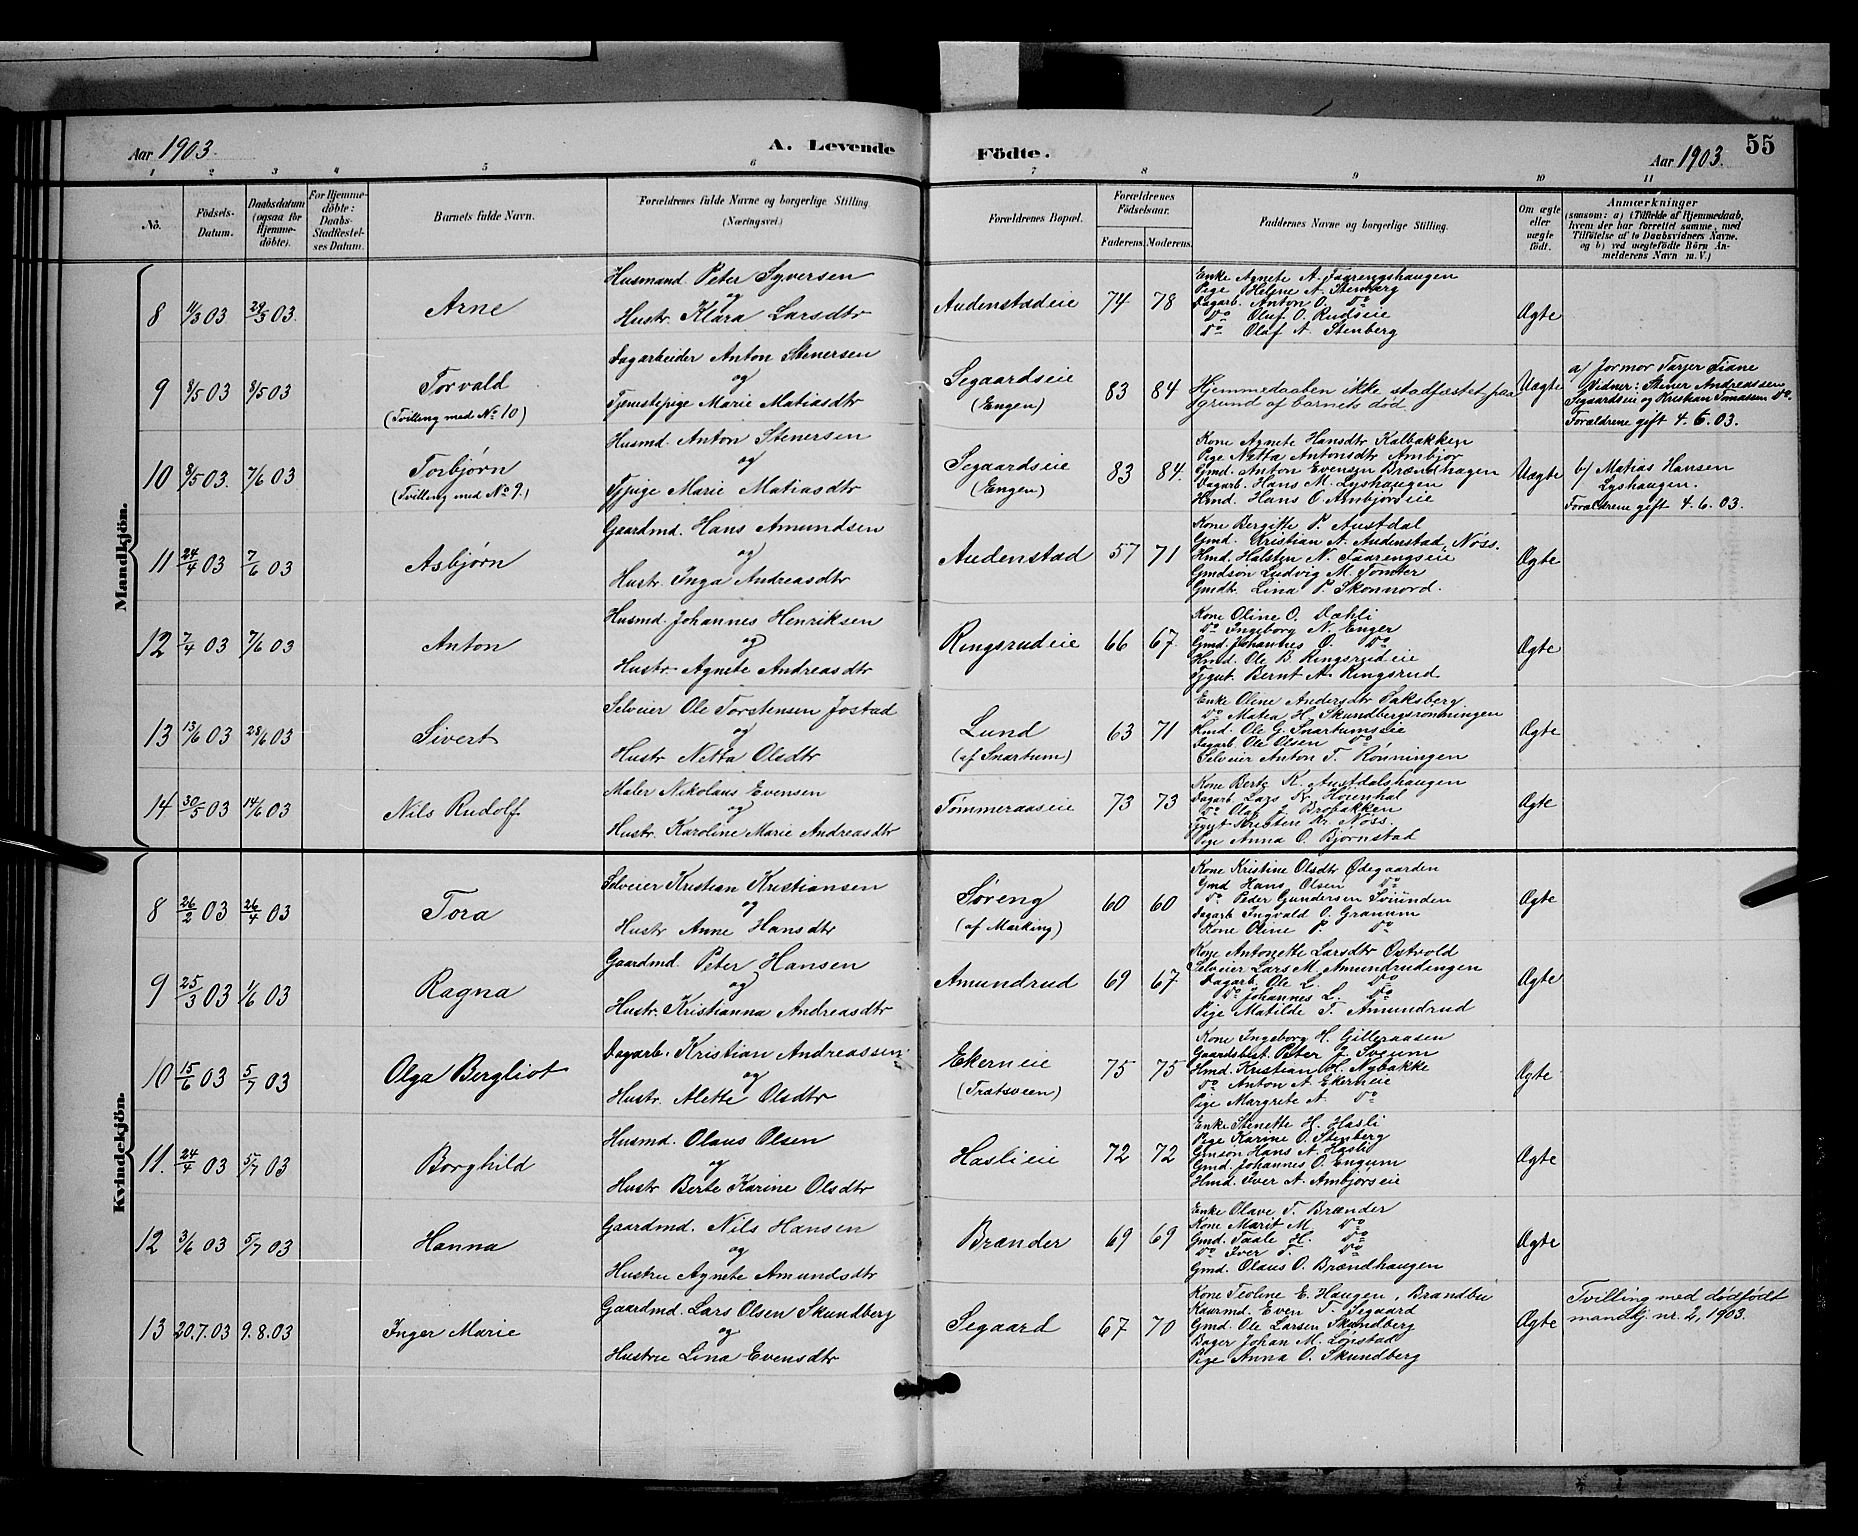 Aar 1903.
A. Levende Födte.
Aar 1903.
55
1 2 3 4 5 6 7 8 9 10 11
No.
Födsels-Datum.
Daabsdatum (ogsaa för Hjemme-döbte).
For Hjemme-döbte: Daabs-Stadfæstel-ses Datum.
Barnets fulde Navn.
Forældrenes fulde Navne og borgerlige Stilling. (Næringsvei.)
Forældrenes Bopæl.
Forældrenes Födselsaar.
Faderens. Moderens.
Faddernes Navne og borgerlige Stilling.
Om ægte eller uægte födt.
Anmærkninger
(saasom: a) i Tilfælde af Hjemmedaab, hvem der har forrettet samme, med Tilföielse af to Daabsvidners Navne, og b) ved uægtefödte Börn An-melderens Navn m. V.)
Mandkjön.
8 11/3 03 29/3 03. Arne
Husmand Peter Syversen
og
Hustr. Klara Larsdtr
Audenstadeie 74 78
Enke Agnete A. Faarengshaugen
Pige Helene A. Stenberg
Dagarb. Anton O. Do
Do Oluf O. Rudseie
Do Olaf A. Stenberg
Ægte
9 8/5 03 8/5 03 Torvald
(Tvilling med No 10)
Dagarbeider Anton Stenersen
og
Tjenestepige Marie Matiasdtr
Segaardseie
(Engen)
83 84
Hjemmedaaben ikke stadfæstet paa
grund af barnets död.
Uægte
a) Jormor Tarjer Tiane
Vidner: Stener Andreassen
Segaardseie og Kristian Tomassen Do.
Forældrene gift 4.6.03.
10 8/5 03. 7/6 03 Torbjørn
(Tvilling med No 9.)
Husmd. Anton Stenersen
og
Tjpige Marie Matiasdtr
Segaardseie
(Engen)
83 84.
Kone Agnete Hansdtr Kalbakken
Pige Netta Antonsdtr Ambjør
Gmd. Anton Evensen Brændhagen
Dagarb. Hans M. Lyshaugen
Hmd. Hans O. Ambjørseie
Uægte
b) Matias Hansen
Lyshaugen.
Forældrene gift 4.6.03.
11 24/4 03 7/6 03 Asbjørn
Gaardmd. Hans Amundsen
og
Hustr. Inga Andreasdtr
Audenstad 57 71
Kone Bergitte P. Austdal
Gmd. Kristian A. Audenstad, Nöss.
Hmd. Halsten N. Faarengseie
Gmdsøn Ludvig M. Tomter
Gmdtr. Lina P. Skonnord.
Ægte
12 7/4 03 7/6 03 Anton
Husmd. Johannes Henriksen
og
Hustr. Agnete Andreasdtr
Ringsrudeie 66 67.
Kone Oline O. Dæhli
Do Ingeborg N. Enger
Gmd. Johannes O. Do
Hmd. Ole B. Ringsrudeie
Tjgut. Bernt A. Ringsrud
Ægte
13 13/6 03 28/6 03 Sivert
Selveier Ole Torstensen Jostad
og
Hustr Netta Olsdtr
Lund
(af Snartum)
63 71
Enke Oline Andersdtr Paksberg
Do Matea H. Skundbergsrønningen
Hmd. Ole G. Snartumseie
Dagarb. Ole Olsen Do
Selveier Anton T. Rønningen
Ægte
14 30/5 03 14/6 03 Nils Rudolf
Maler Nikolaus Evensen
og
Hustr. Karoline Marie Andreasdtr
Tømmeraaseie 73 73
Kone Berte K. Austdalshaugen
Dagarb. Lars Kr. Hoienhal
Do Olaf J. Brobakken
Tjgut Kristen Kr. Nöss.
Pige Anna O. Bjørnstad
Ægte
Kvindekjön.
8 26/2 03 26/4 03 Tora
Selveier Kristian Kristiansen
og
Hustr Anne Hansdtr
Søreng
(af Marking)
60 60
Kone Kristine Olsdtr Ødegaarden
Gmd Hans Olsen Do
Do Peder Gundersen Tviinden
Dagarb Ingvald O. Granum
Kone Oline P. Do
Ægte
9 25/3 03 1/6 03 Ragna
Gaardmd. Peter Hansen
og
Hustr. Kristianna Andreasdtr
Amundrud 69 67
Kone Antonette Larsdtr Østvold
Selveier Lars M. Amundrudengen
Dagarb. Ole L. Do
Do Johannes L. Do
Pige Matilde T. Amundrud
Ægte
10 15/6 03 5/7 03 Olga Bergliot
Dagarb. Kristian Andreassen
og
Hustr. Alette Olsdtr
Ekerneie
(Trætsveen)
75 75
Kone Ingeborg H. Gilleraasen
Gaardsbest. Peter J. Sveum
Hmd. Kristian H. Nybakke
Do Anton A. Ekerneie
Pige Margrete A. Do
Ægte
11. 24/4 03 5/7 03 Borghild
Husmd. Olaus Olsen
og
Hustr Berte Karine Olsdtr
Haslieie 72 72
Enke Stenette H. Hasli
Pige Karine O. Stenberg
Gmsøn Hans A. Hasli
Gmd. Johannes O. Engum
Hmd. Iver A. Ambjørseie
Ægte
12 3/6 03 5/7 03 Hanna
Gaardmd. Nils Hansen
og
Hustru Agnete Amundsdtr
Brænder 69 69
Enke Olave T. Brænder
Kone Marit M. Do
Gmd. Taale H. Do
Do Iver T. Do
Gmd. Olaus O. Brændhaugen
Ægte
13 20.7.03 9.8.03 Inger Marie
Gaardmd. Lars Olsen Skundberg
og
Hustru Lina Evensdtr
Segaard 67 70
Kone Teoline E. Haugen, Brandbu
Kaarmd. Even T. Segaard
Gmd. Ole Larsen Skundberg
Bager Johan M. Lønstad
Pige Anna O. Skundberg
Ægte
Tvilling med dødfødt
mandkj. nr. 2, 1903.